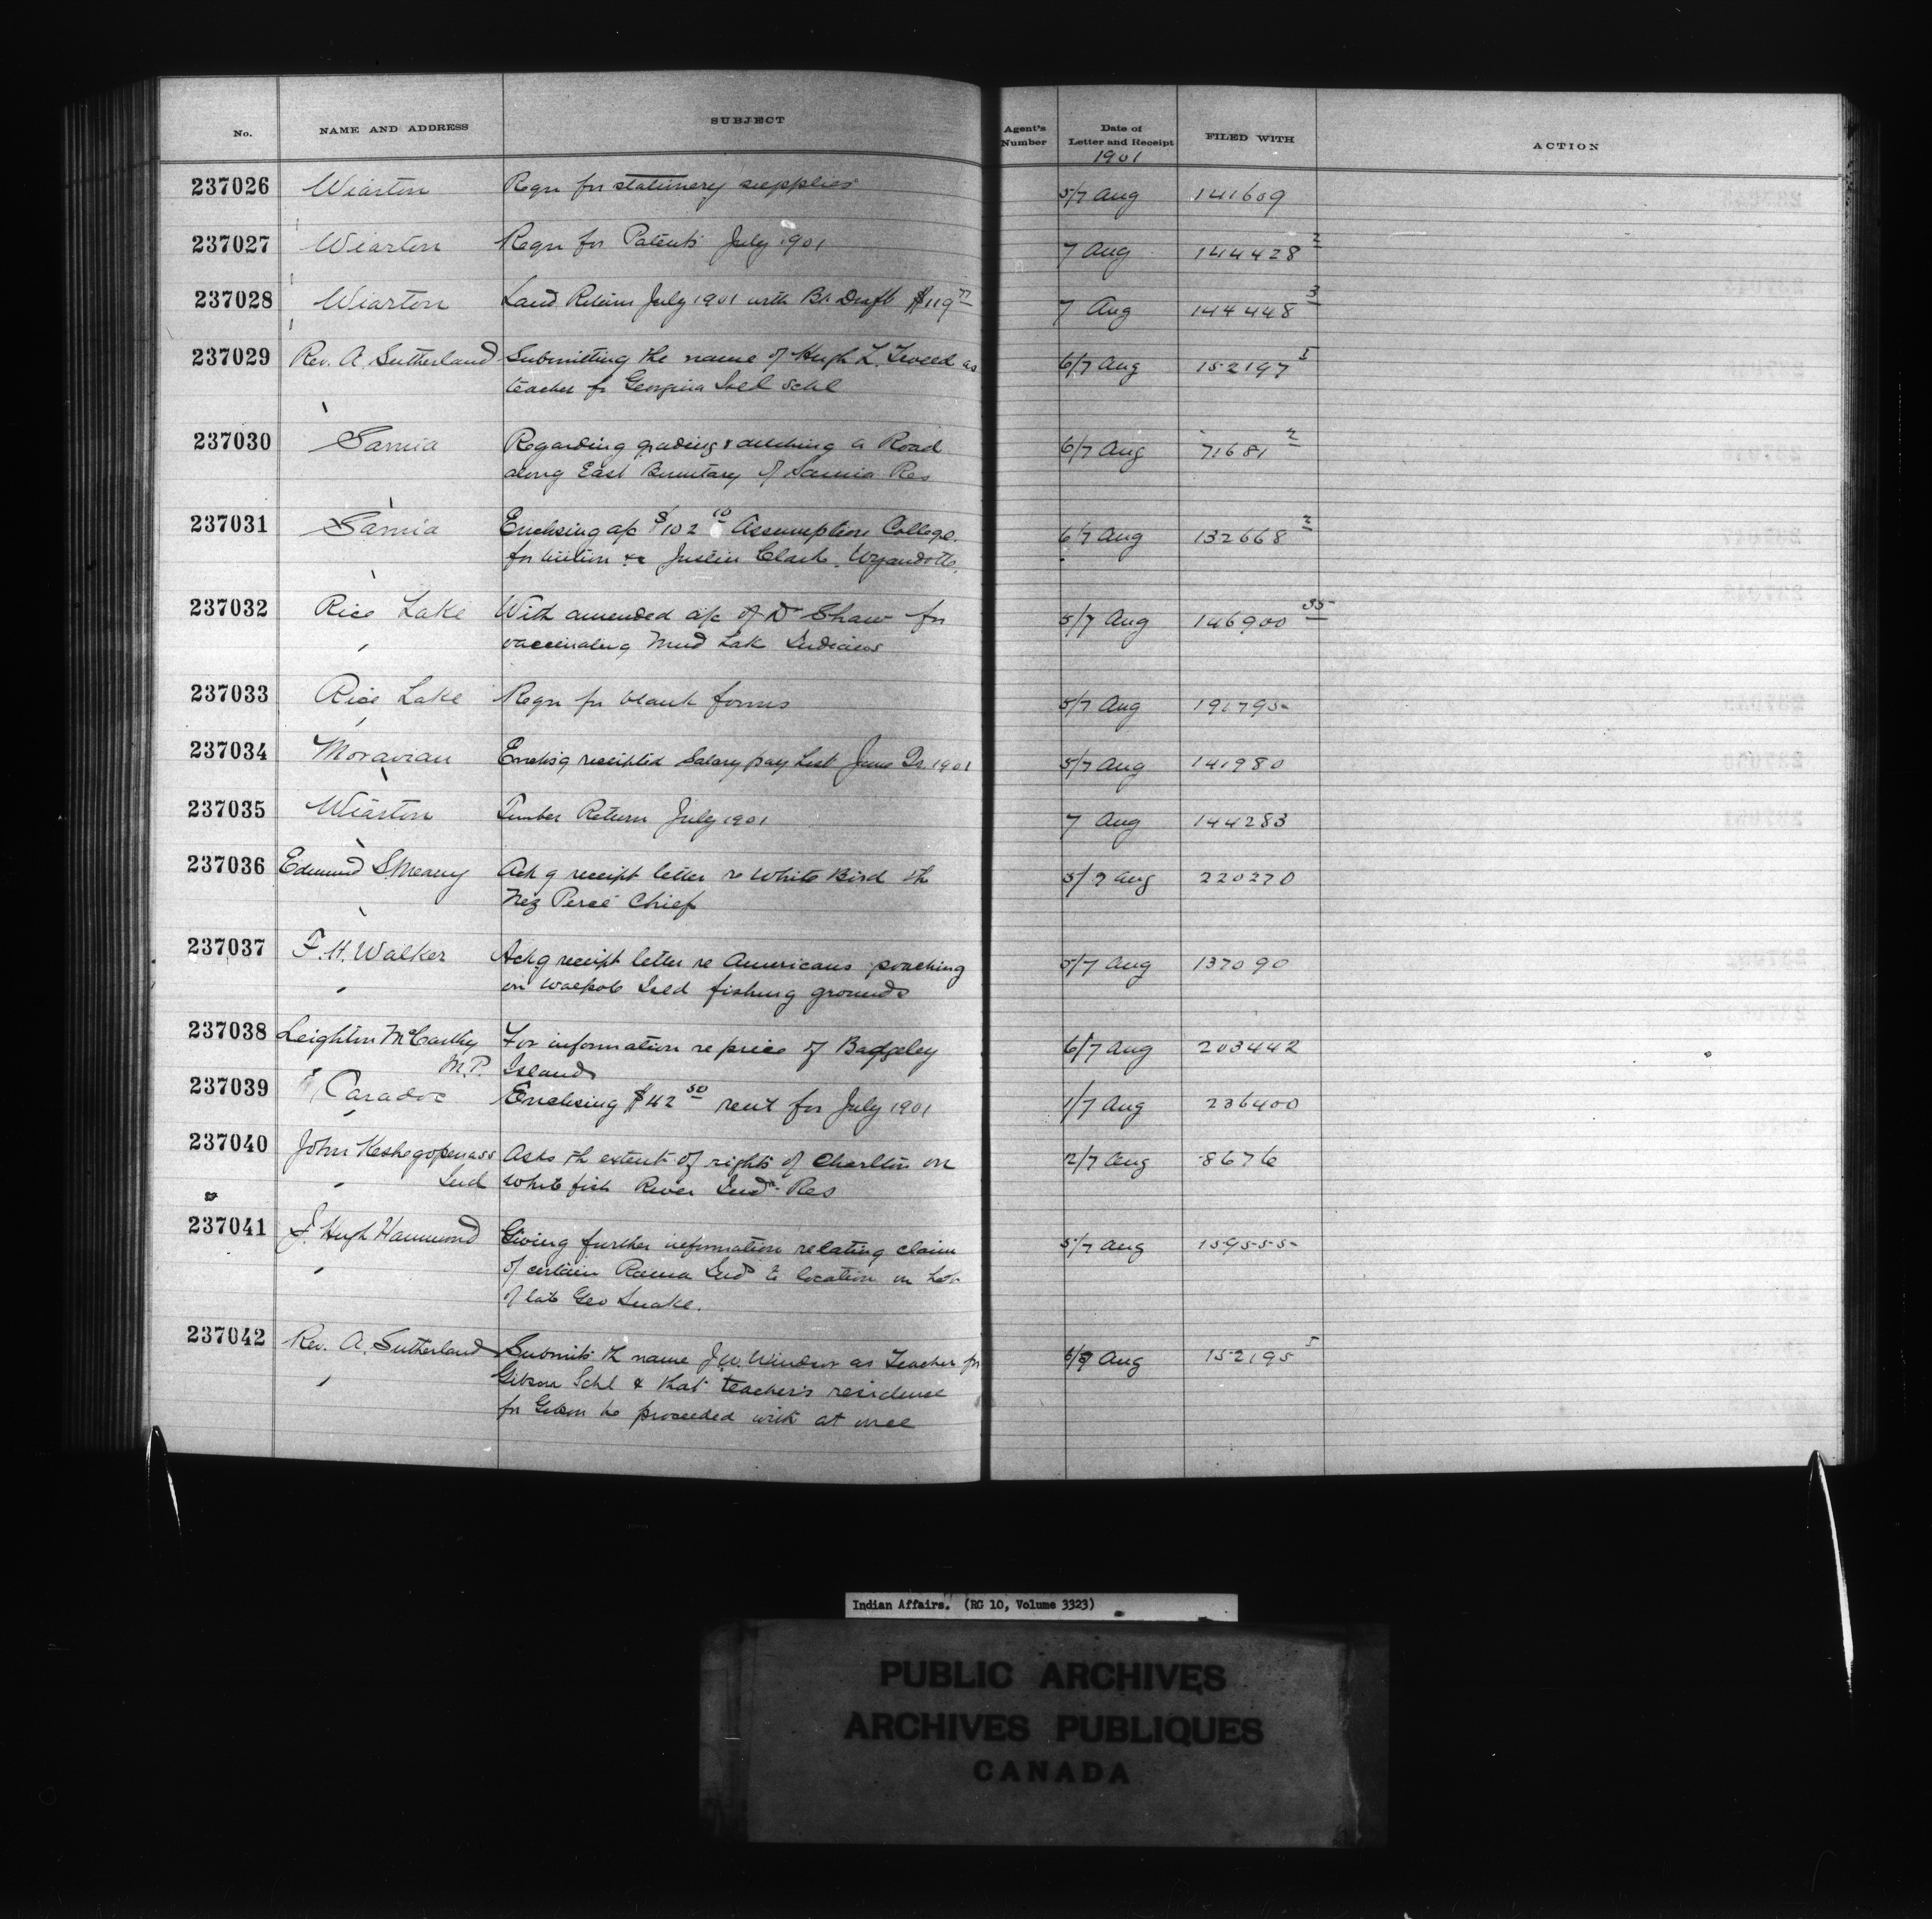 No. NAME AND ADDRESS SUBJECT Agent's Number Date of Letter and Receipt FILED WITH ACTION
1901
237026 Wiarton Reqn for stationery supplies 5/7 Aug 141609
237027 Wiarton Reqn for Patents July 1901 7 Aug 144428 2
237028 Wiarton Land Return July 1901 with Bk Draft $119 77 7 Aug 144448 3
237029 Rev. A. Sutherland Submitting the name of Hugh L. Tweed as 6/7 Aug 152197 1
teacher for Georgina Isld Schl
237030 Sarnia Regarding grading & ditching a Road 6/7 Aug 71681 2
along East Boundary of Sarnia Res
237031 Sarnia Enclosing a/c $102 10 Assumption College 6/7 Aug 132668 2
for tuition &c Justin Clark, Wyandotte.
237032 Rice Lake With amended a/c of Dr Shaw for 5/7 Aug 146900 35
vaccinating Mud Lake Indians
237033 Rice Lake Reqn for blank forms 5/7 Aug 191795
237034 Moravian Enclosg receipted Salary pay List June Qr 1901 5/7 Aug 141980
237035 Wiarton Timber Return July 1901 7 Aug 144283
237036 Edmund S. Meany Ackg receipt letter re White Bird the 3/7 Aug 220270
Nez Percé Chief
237037 F. H. Walker Ackg receipt letter re Americans poaching 5/7 Aug 137090
on Walpole Isld fishing grounds
237038 Leighton McCarthy For information re price of Badgeley 6/7 Aug 203442
M.P. Island
237039 Caradoc Enclosing $42 50 rent for July 1901 1/7 Aug 236400
237040 John Keshegopenass Asks th extent of rights of Charlton on 2/7 Aug 8676
Ind White fish River Indn Res
237041 J. Hugh Hammond Giving further information relating claim 5/7 Aug 159555
of certain Rama Inds to location on Lot
of late Geo Snake.
237042 Rev. A. Sutherland Submits th name J.W. Windsor as Teacher for 6/7 Aug 152195 1
Gibson Schl & that teacher's residence
for Gibson be proceeded with at once
Indian Affairs. (RG 10, Volume 3323)
PUBLIC ARCHIVES
ARCHIVES PUBLIQUES
CANADA